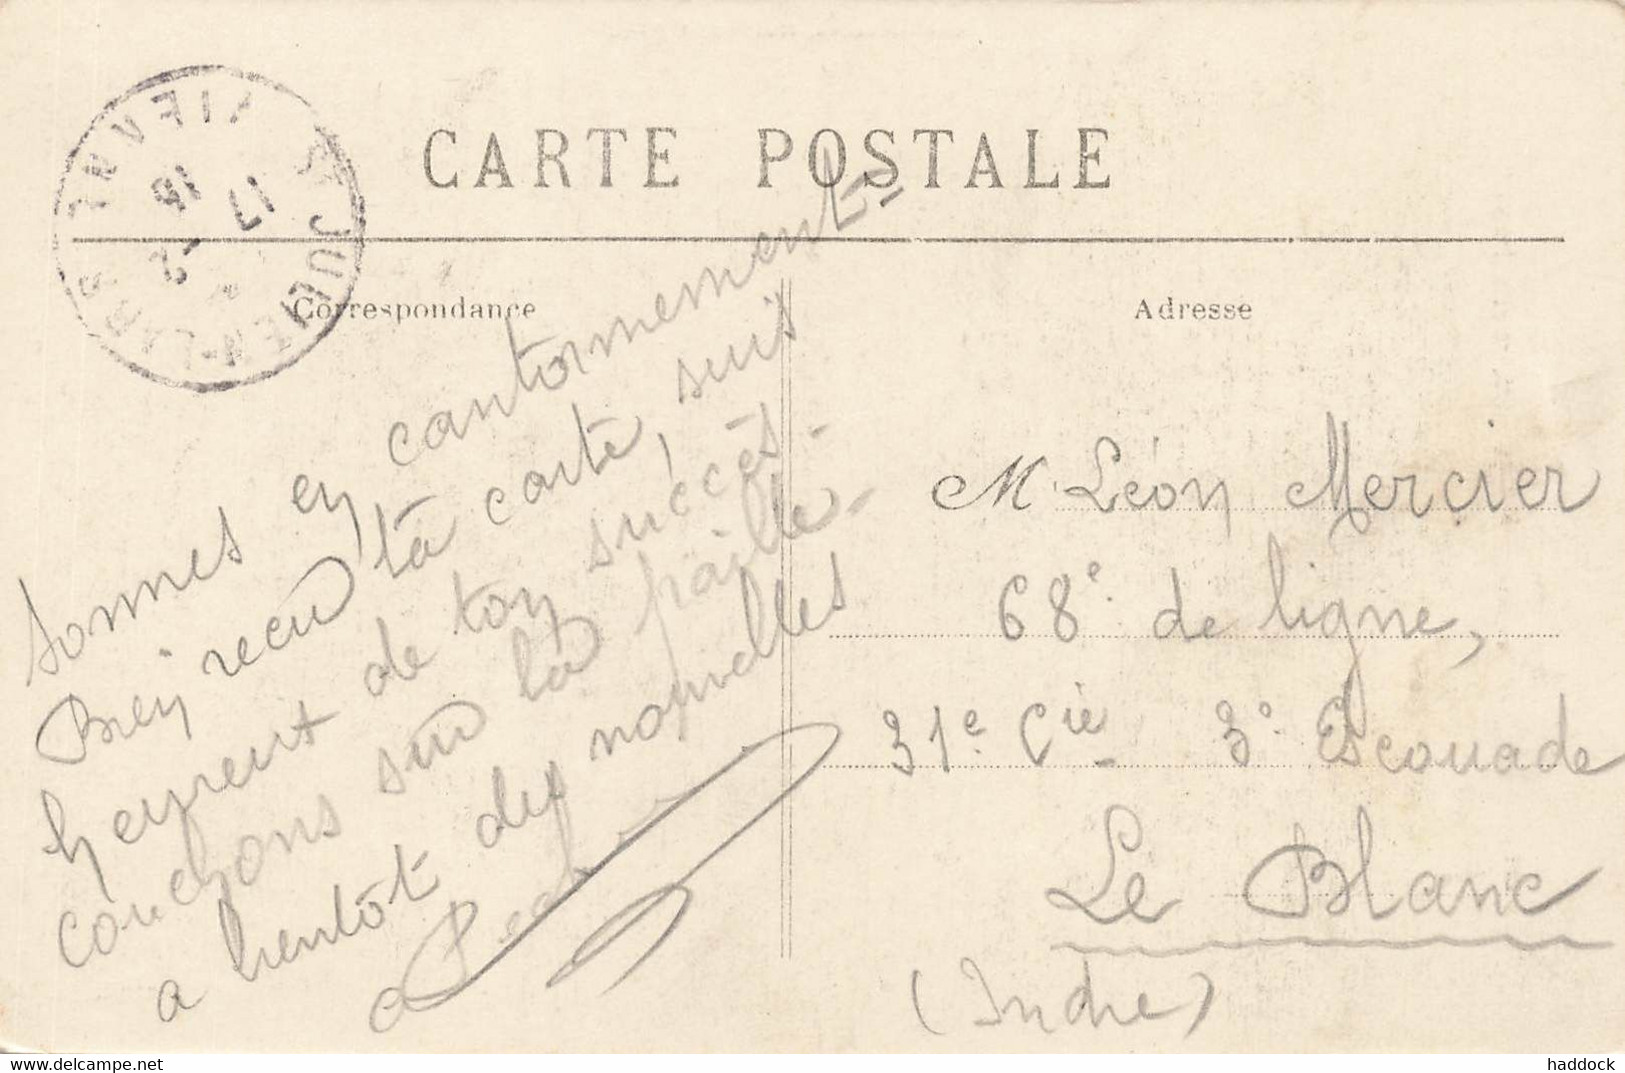 CARTE POSTALE
Correspondance
Adresse
Sommes en cantonnement-
Bien recu ta carte, suis
heureux de ton succès -
couchons sur la paille -
a bientôt des nouvelles
M. Léon Mercier
68e. de ligne,
31e. Cie 3e Escouade
Le Blanc
(Indre)
ST JULIEN-LARS
VIENNE
17 -2
16
delcampe.net
haddock